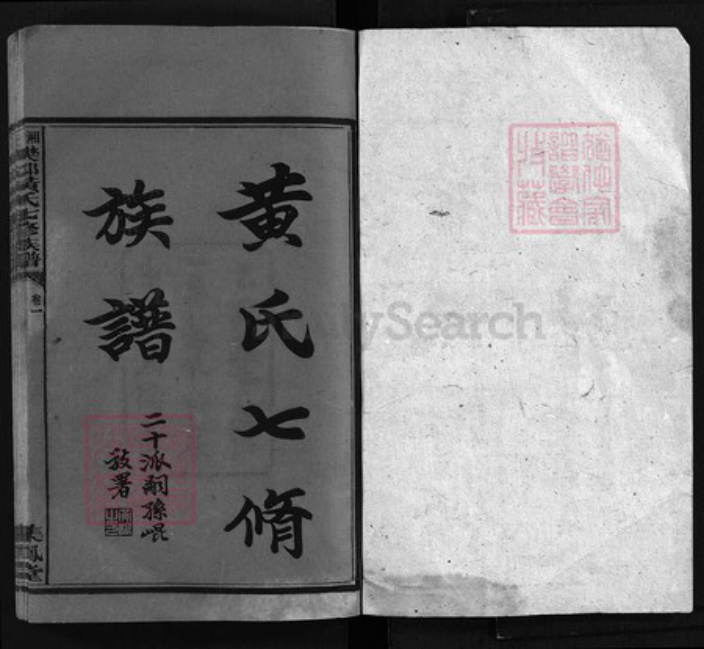 黄氏七脩
族譜
二十派嗣孫崐
敬署
湘楚邵黃氏七修族譜
卷一
FamilySearch